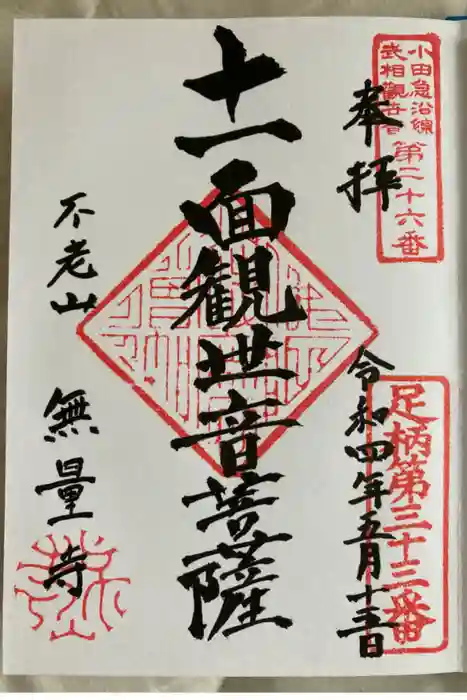 小田急沿線
武相観世音
第二十六番
奉拝
令和四年五月十三日
足柄第三十三番
十一面観世音菩薩
不老山
無量寺